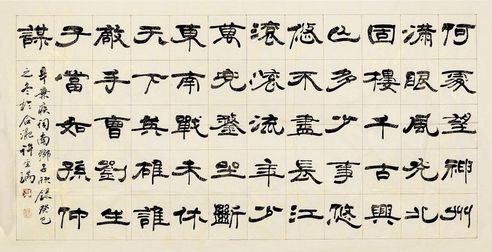 何處望神州
滿眼風光北
固樓千古興
亡多少事悠
悠不盡長江
滾滾流年少
萬兜鍪坐斷
東南戰未休
天下英雄誰
敵手曹劉生
子當如孫仲
謀
辛棄疾詞南鄉子 錄癸巳
之冬於合肥許